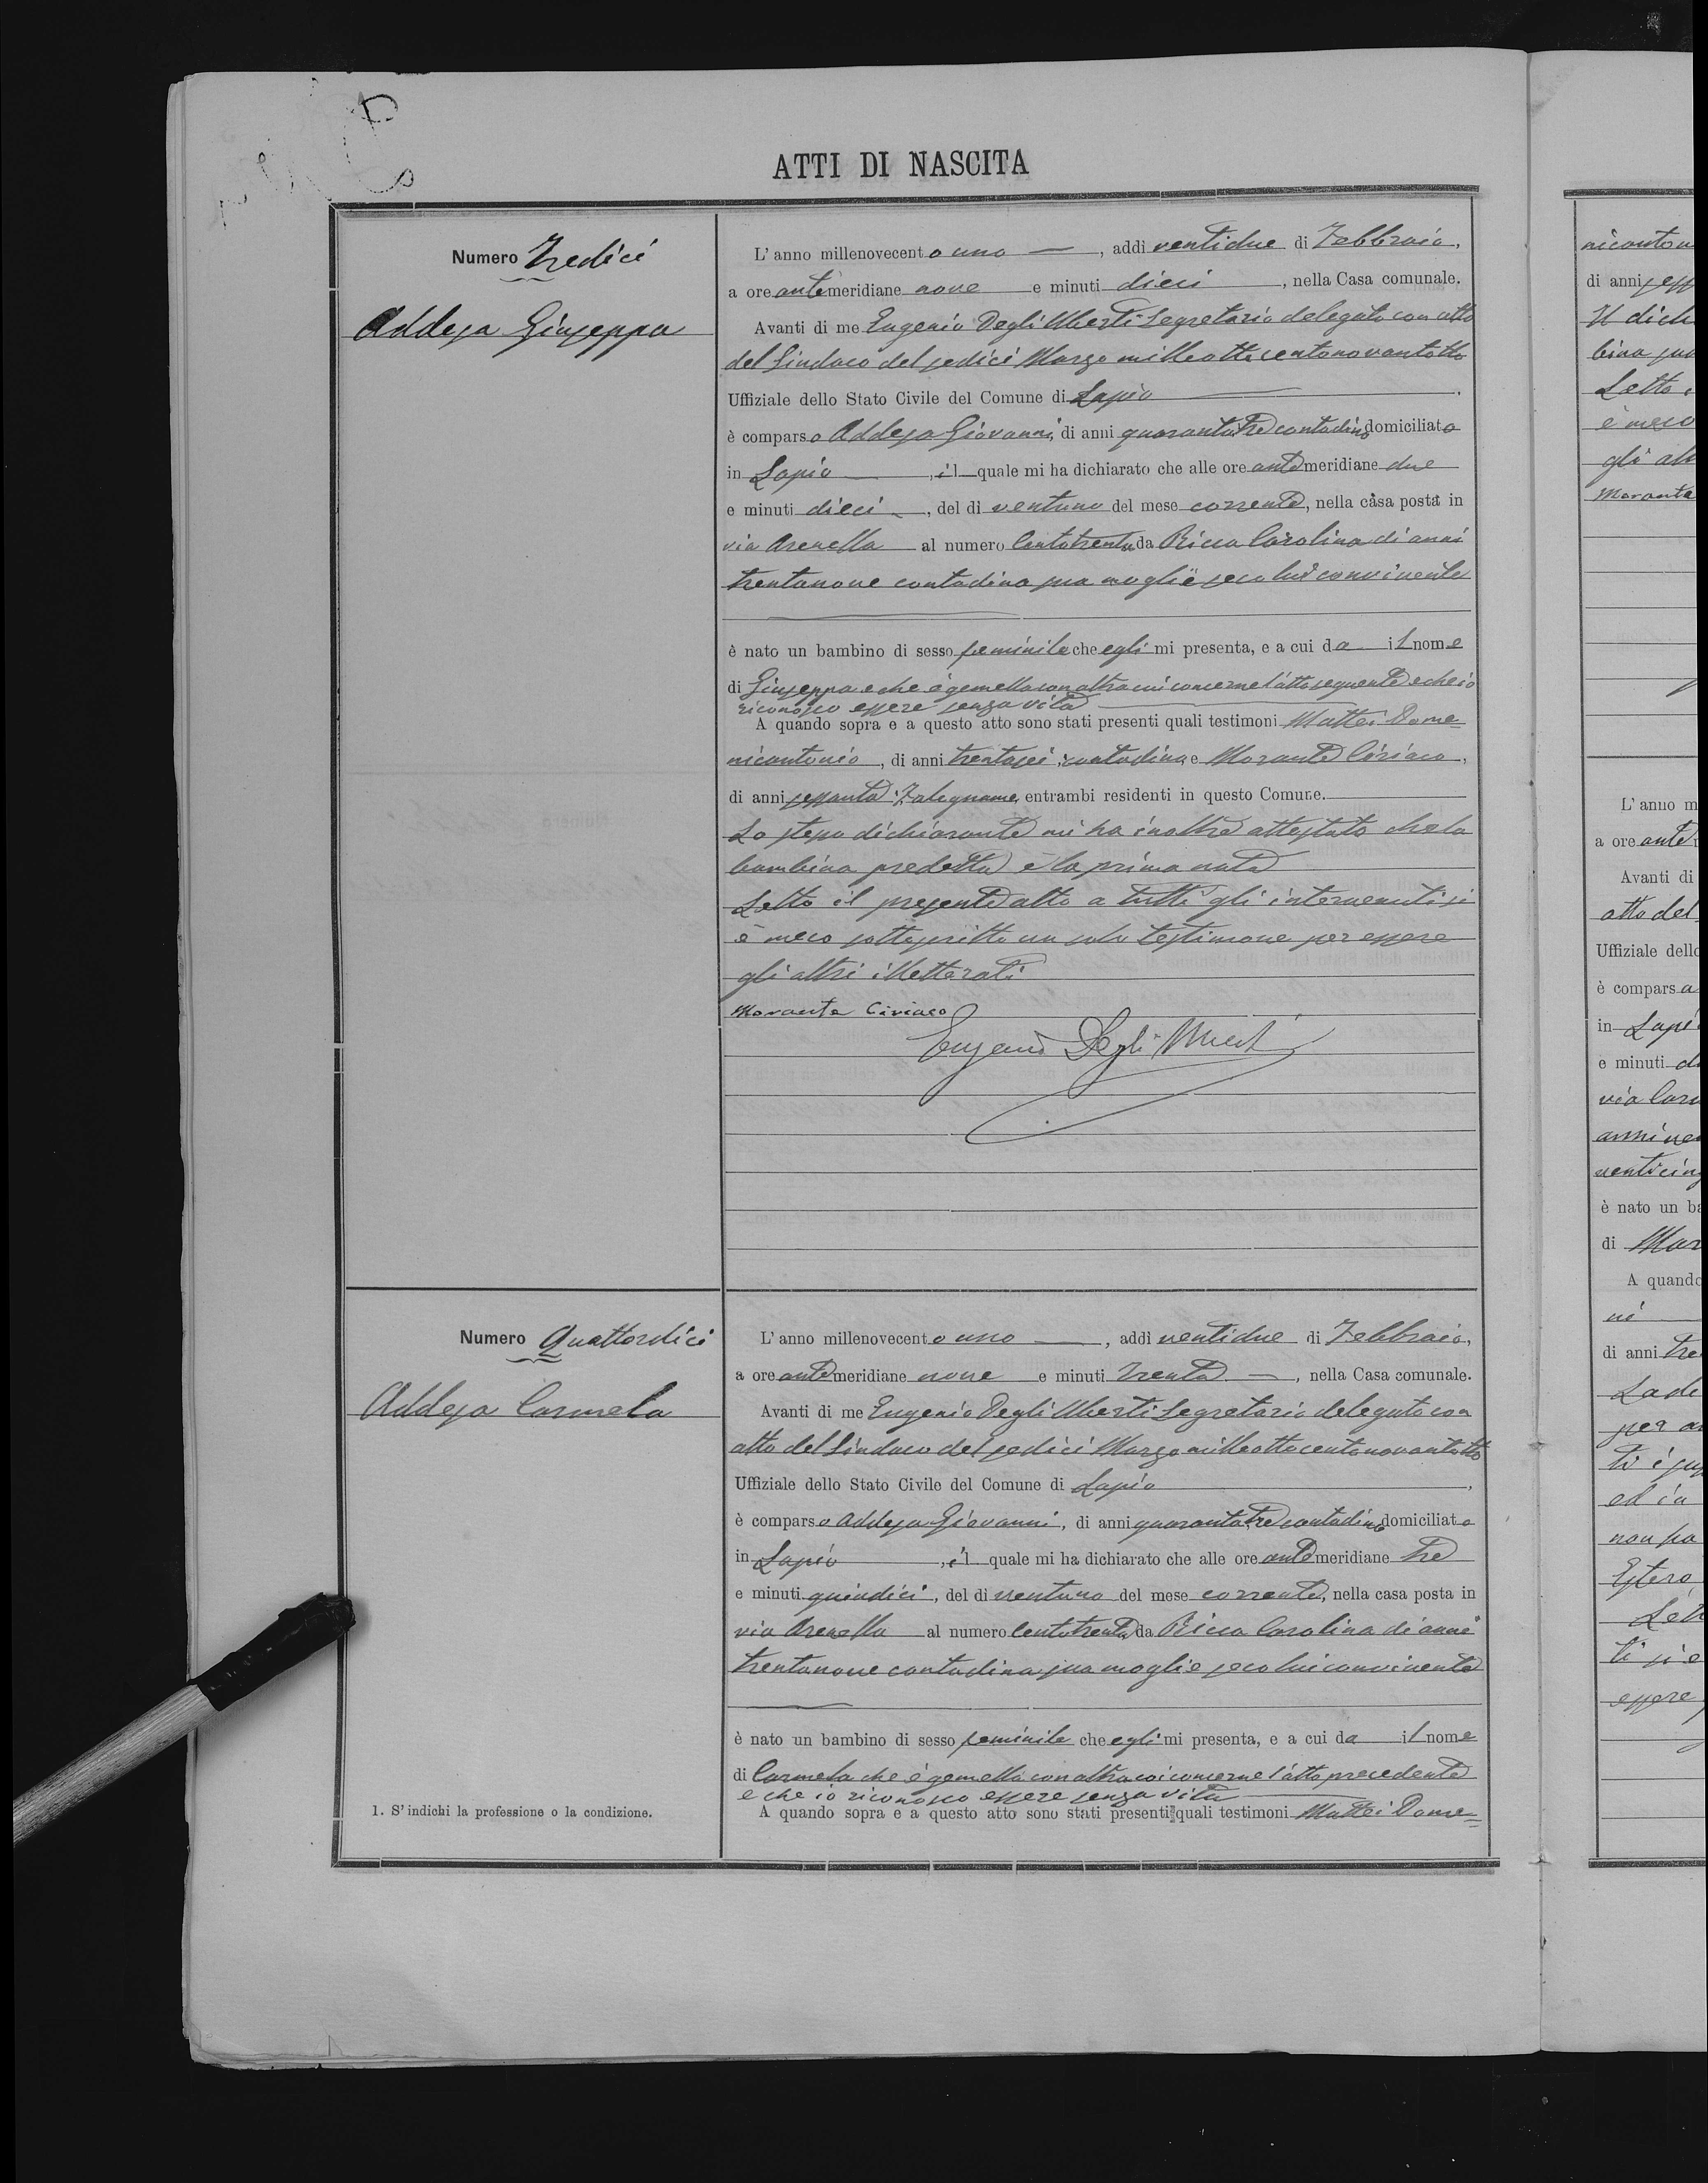 ATTI DI NASCITA
Numero Tredici
Addesa Giuseppa
L'anno millenovecento uno —, addi ventidue di Febbraio,
a ore antimeridiane nove e minuti dieci, nella Casa comunale.
Avanti di me Eugenio Degli Uberti Segretario delegato con atto
del Sindaco del sedici Marzo milleottocentonovantotto
Uffiziale dello Stato Civile del Comune di Lapio —.
è comparso Addesa Giovanni, di anni quarantatre contadino domiciliato
in Lapio —, il quale mi ha dichiarato che alle ore antemeridiane due
e minuti dieci —, del di ventuno del mese corrente, nella casa posta in
via Arenella al numero Centotrenta da Ricca Carolina di anni
trentanove contadina sua moglie seco lui convivente
è nato un bambino di sesso feminile che egli mi presenta, e a cui da il nome
di Giuseppa e che è gemella con altra cui concerne l'atto seguente e che io
riconosco essere senza vita —
A quando sopra e a questo atto sono stati presenti quali testimoni Mattei Dome=
nicantonio, di anni trentasei, contadino, e Morante Ciriaco,
di anni sessanta, Falegname, entrambi residenti in questo Comune.
Lo stesso dichiarante mi ha inoltre attestato che la
bambina predetta è la prima nata
Letto il presente atto a tutti gli intervenuti si
è meco sottoscritto un solo testimone per essere
gli altri illetterati
Morante Ciriaco
Eugenio Degli Uberti
Numero Quattordici
Addesa Carmela
L'anno millenovecento uno —, addi ventidue di Febbraio,
a ore antemeridiane nove e minuti trenta —, nella Casa comunale.
Avanti di me Eugenio Degli Uberti Segretario delegato con
atto del Sindaco del sedici Marzo milleottocentonovantotto
Uffiziale dello Stato Civile del Comune di Lapio,
è comparso Addesa Giovanni, di anni quarantatre contadino domiciliato
in Lapio, il quale mi ha dichiarato che alle ore antemeridiane tre
e minuti quindici, del di ventuno del mese corrente, nella casa posta in
via Arenella al numero Centotrenta da Ricca Carolina di anni
trentanove contadina sua moglie seco lui convivente
è nato un bambino di sesso feminile che egli mi presenta, e a cui da il nome
di Carmela che è gemella con altra cui concerne l'atto precedente
e che io riconosco essere senza vita —
A quando sopra e a questo atto sono stati presenti quali testimoni Mattei Dome=
1. S'indichi la professione o la condizione.
nicanton
di anni sess
Il dich
bina
Letto
è meco
gli alt
Morante
L'anno m
a ore ante
Avanti di
atto del
Uffiziale dello
è comparsa
in Lapi
e minuti
via
anni
venticin
è nato un ba
di Mar
A quando
ni
di anni tre
La di
per
ed in
non
Estero
Let
ti si è
essere